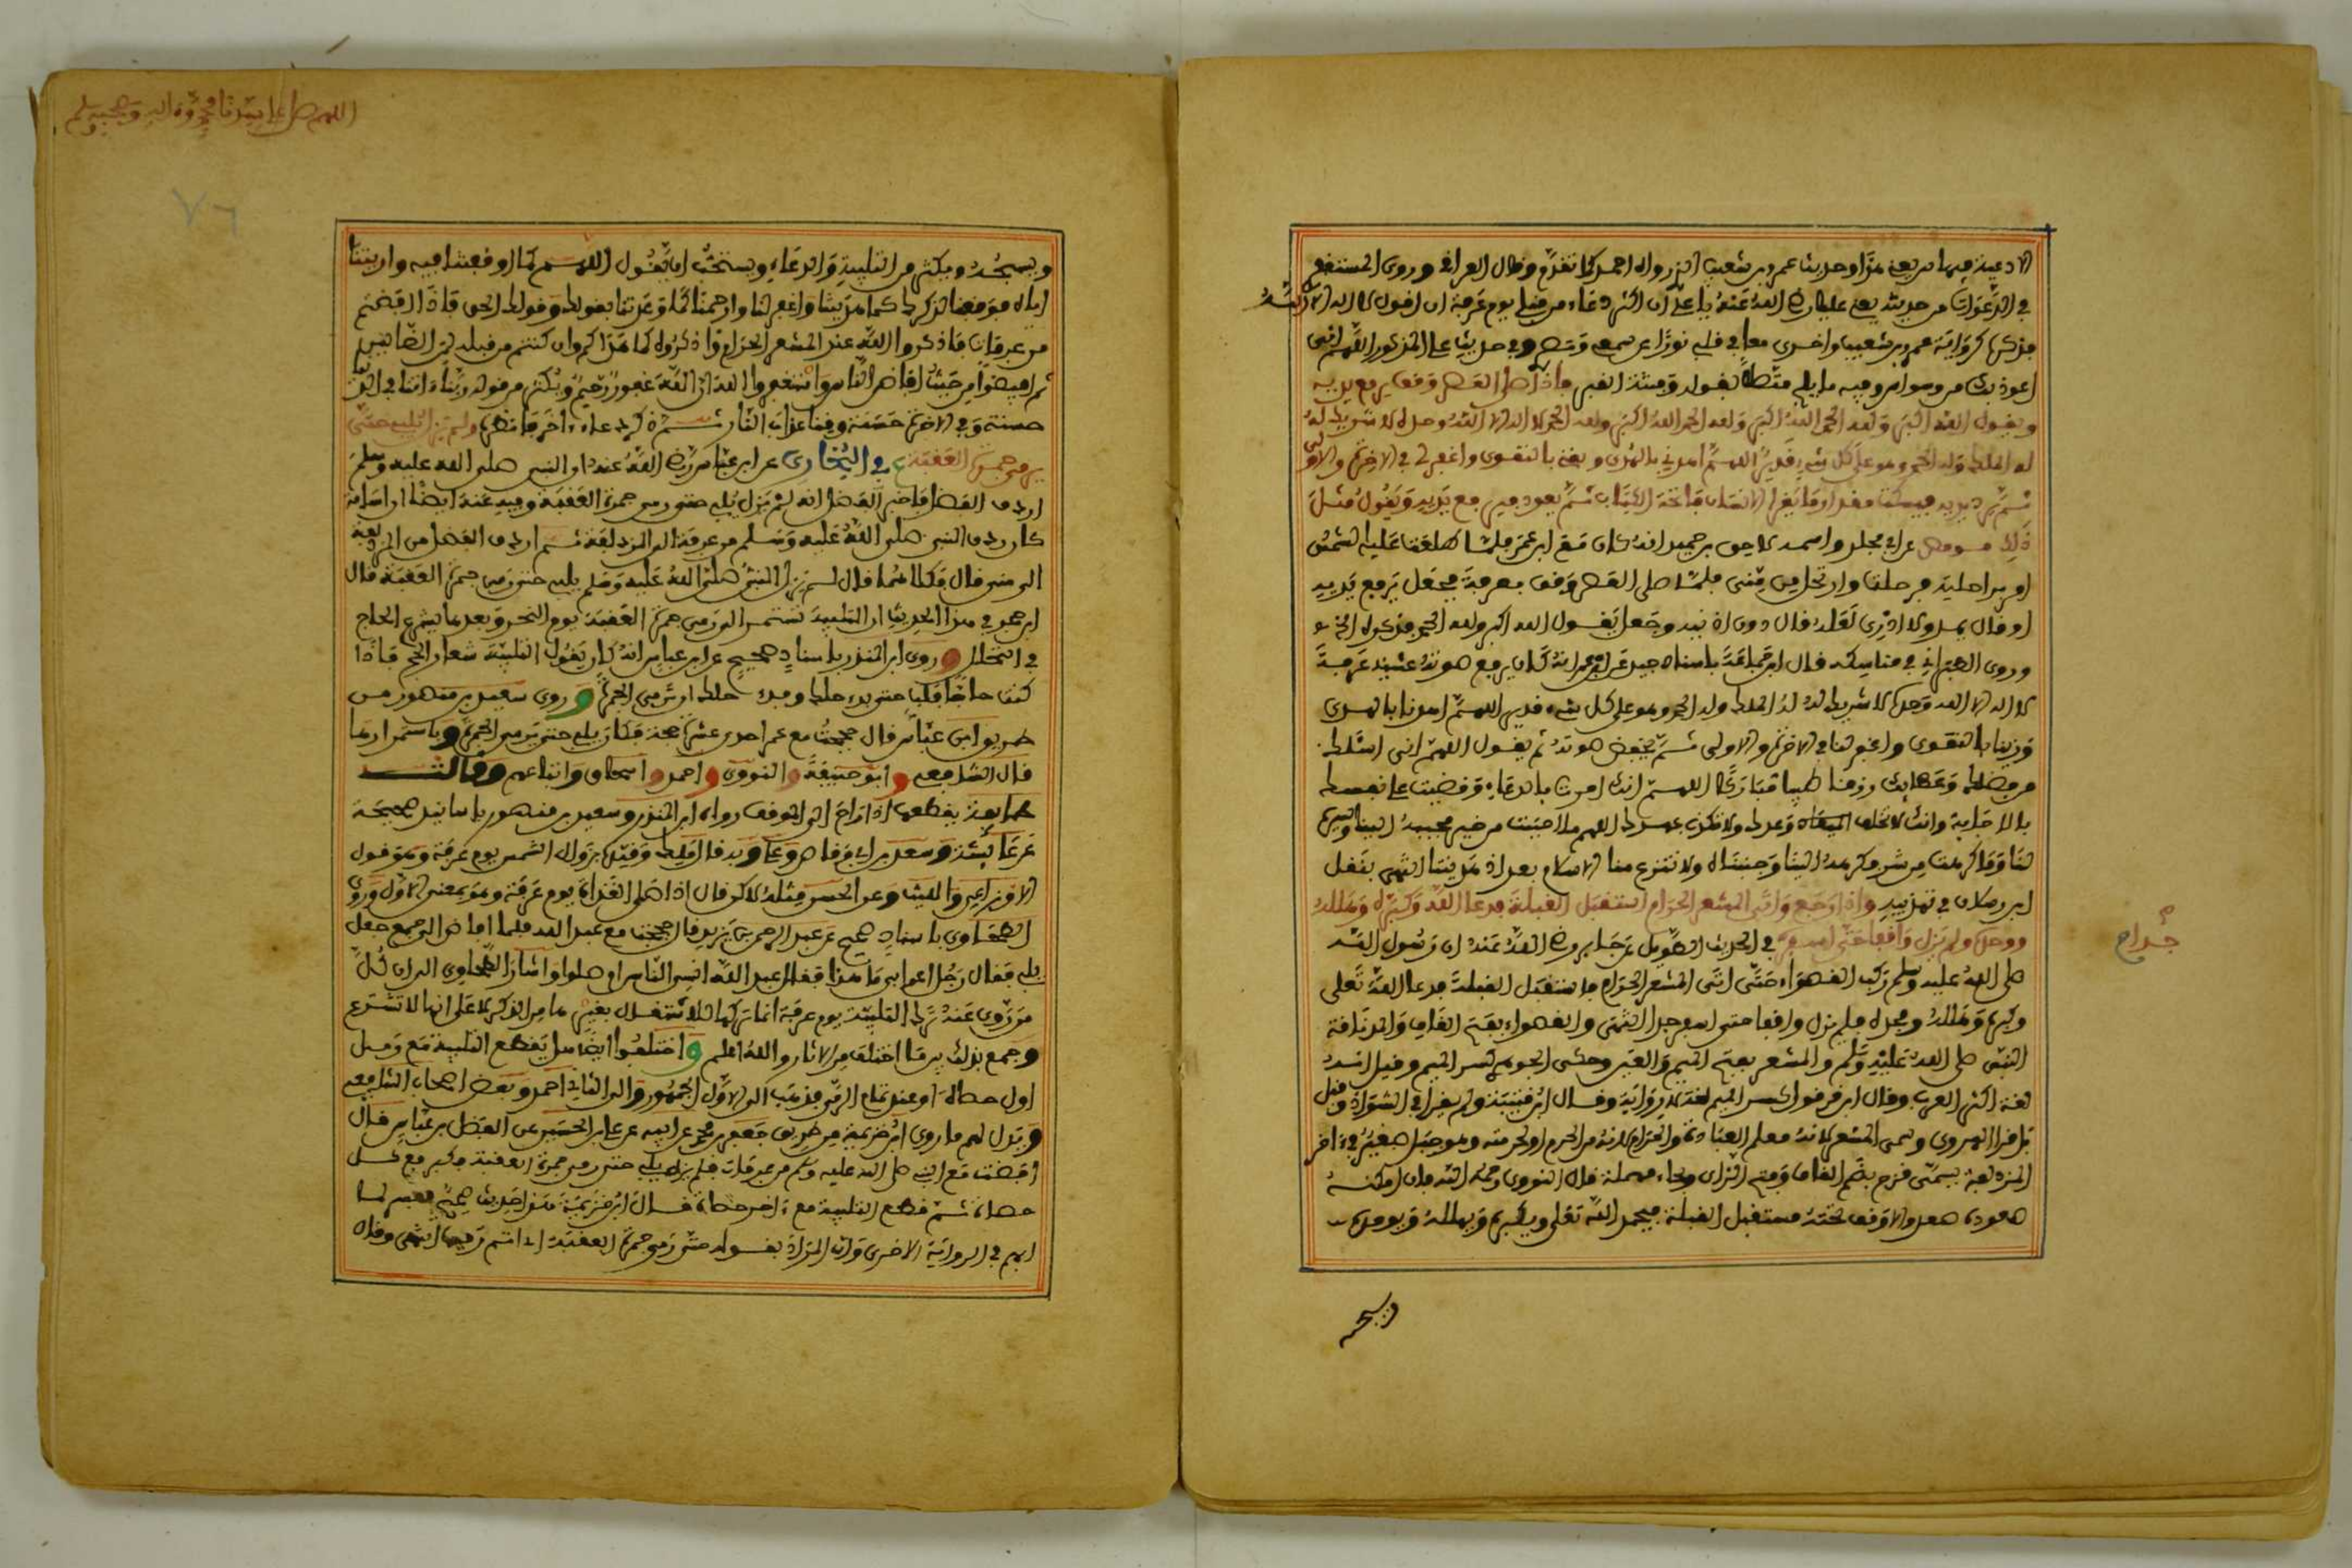 الادعية فيها مريعة هذا وحديث عمرو بن شعيب الذي رواه احمد كما تقدم وقال العراقي وروى المستغفري
في الدعوات من حديث علي رضي الله عنه يا علي ان اكثر دعاء من قبلي يوم عرفة ان اقول لا اله الا الله
فذكرها كرواية عمرو بن شعيب واخرى معا في قلبي نورا وفي سمعي وبصري وفي حديث علي المذكور اللهم اني
اعوذ بك من وسواس وفيه ما يلج مثله بقوله وفتنة القبر فاذا صلى العصر وقف يرفع يديه
ويقول الله اكبر ولله الحمد الله اكبر ولله الحمد الله اكبر ولله الحمد لا اله الا الله وحده لا شريك له
له الملك وله الحمد وهو على كل شيء قدير اللهم اهدني بالهدى ونقني بالتقوى واغفر لي في الاخرة والاولى
ثم يرد يديه فيسكت مقدار ما يقرا الانسان فاتحة الكتاب ثم يعود فيرفع يديه ويقول مثل
ذلك عن ابي مجلز واسمه لاحق بن حميد انه كان مع ابن عمر فلما طلعت عليه الشمس
امر براحلته فرحلت وارتحل من منى فلما صلى العصر وقف بعرفة فجعل يرفع يديه
او قال يمد ولا ادري لعله قال دون اذنيه وجعل يقول الله اكبر ولله الحمد فذكره
وروى الطبراني في مناسكه قال ابن جماعة باسناد جيد عن ابن عمر انه كان يرفع صوته عشية عرفة
لا اله الا الله وحده لا شريك له له الملك وله الحمد وهو على كل شيء قدير اللهم اهدنا بالهدى
وزينا بالتقوى واغفر لنا في الاخرة والاولى ثم يخفض صوته ثم يقول اللهم اني اسئلك
من فضلك وعطائك رزقا طيبا مباركا اللهم انك امرت بالدعاء وقضيت على نفسك
بالاجابة وانت لا تخلف الميعاد وعدك ولا تكذب عهدك اللهم ما احببت من خير فحببه الينا ويسره
لنا وما كرهت من شر فكرهه الينا وجنبناه ولا تنزع منا الاسلام بعد اذ هديتنا انتهى نقل
ابن رسلان في تهذيبه واذا وجع واتى المشعر الحرام استقبل القبلة فدعا الله وكبره وهلله
ووحده ولم يزل واقفا حتى اسفر في الحديث الطويل عن جابر رضي الله عنه ان رسول الله
صلى الله عليه وسلم ركب القصواء حتى اتى المشعر الحرام فاستقبل القبلة فدعا الله تعلى
وكبره وهلله ووحده فلم يزل واقفا حتى اسفر جدا انتهى والقصواء بفتح القاف والمد ناقة
النبي صلى الله عليه وسلم والمشعر بفتح الميم والعين وحكى الجوهري كسر الميم وقيل انه
لغة اكثر العرب وقال ابن قرقول كسر الميم لغة لا رواية وقال ابن قتيبة ولم يقرا في الشواذ وقيل
بل قرا الهروي وسمى المشعر لانه معلم العبادة والحرام لانه من الحرم او لحرمته وهو جبل صغير في اخر
المزدلفة يسمى قزح بضم القاف وفتح الزاي وحاء مهملة قال النووي رحمه الله فان امكنه
صعوده صعد والا وقف تحته مستقبل القبلة فيحمد الله تعلى ويكبره ويهلله ويوحده
ويسبحه
جدا ح
اللهم صل على سيدنا محمد واله وصحبه وسلم
٧٦
ويسبحه ويكثر من التلبية والدعاء ويستحب ان يقول اللهم كما اوقفتنا فيه واريتنا
اياه فوفقنا لذكرك كما هديتنا واغفر لنا وارحمنا كما وعدتنا بقولك وقولك الحق فاذا افضتم
من عرفات فاذكروا الله عند المشعر الحرام واذكروه كما هداكم وان كنتم من قبله لمن الضالين
ثم افيضوا من حيث افاض الناس واستغفروا الله ان الله غفور رحيم ويكثر من قوله ربنا ءاتنا في الدنيا
حسنة وفي الاخرة حسنة وقنا عذاب النار ولم يزل يلبي حتى
يرمي جمرة العقبة ع في البخاري عن ابن عباس رضي الله عنه ان النبي صلى الله عليه وسلم
اردف الفضل فاخبر الفضل انه لم يزل يلبي حتى رمى جمرة العقبة وفيه عنه ايضا ان اسامة
كان ردف النبي صلى الله عليه وسلم من عرفة الى المزدلفة ثم اردف الفضل من المزدلفة
الى منى قال فكلاهما قال لم يزل النبي صلى الله عليه وسلم يلبي حتى رمى جمرة العقبة قال
ابن حجر في هذا الحديث ان التلبية تستمر الى رمي جمرة العقبة يوم النحر وبعدها يشرع الحاج
في التحلل وروى ابن المنذر باسناد صحيح عن ابن عباس انه كان يقول التلبية شعار الحج فاذا
كنت حاجا فلب حتى بدء حلك وبدء حلك ان ترمي الجمرة وروى سعيد بن منصور من
طريق ابن عباس قال حججت مع عمر احدى عشرة حجة فكان يلبي حتى يرمي الجمرة وباستمرارها
قال الشافعي وابو حنيفة والنووي واحمد واسحاق واتباعهم وقالت
طائفة يقطعها اذا راح الى الموقف رواه ابن المنذر وسعيد بن منصور باسانيد صحيحة
عن عائشة وسعد بن ابي وقاص وعلي وبه قال مالك وقيده بزوال الشمس يوم عرفة وهو قول
الاوزاعي والليث وعن الحسن مثله لاكن قال اذا صلى الغداة يوم عرفة وهو بمعنى الاول وروى
الطحاوي باسناد صحيح عن عبد الرحمن بن يزيد قال حججت مع عبد الله فلما افاض الى جمع جعل
يلبي فقال رجل اعرابي ما هذا فقال عبد الله انسي الناس ام ضلوا واشار الطحاوي الى ان كل
من روي عنه ترك التلبية يوم عرفة انما تركها للاشتغال بغيرها من الذكر لا على انها لا تشرع
وجمع بذلك بين ما اختلف من الاثار والله اعلم واختلفوا ايضا هل يقطع التلبية مع رمي
اول حصاة او عند تمام الرمي فذهب الى الاول الجمهور والى الثاني احمد وبعض اصحاب الشافعي
ويدل لهم ما روى ابن خزيمة من طريق جعفر بن محمد عن ابيه عن علي بن الحسين عن الفضل بن عباس قال
افضت مع النبي صلى الله عليه وسلم من عرفات فلم يزل يلبي حتى رمى جمرة العقبة يكبر مع كل
حصاة ثم قطع التلبية مع ءاخر حصاة قال ابن خزيمة هذا حديث صحيح مفسر لما
ابهم في الرواية الاخرى وان المراد بقوله حتى رمى جمرة العقبة اي اتم رميها انتهى وقال